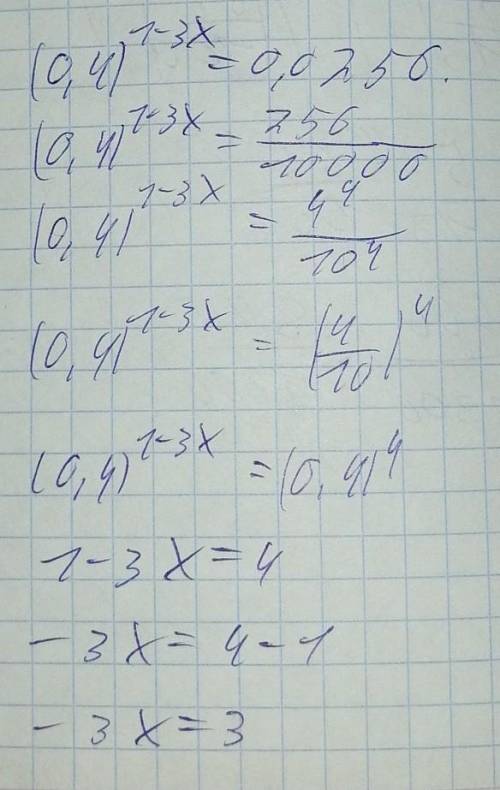 (0,4)^{1-3x} = 0,0256.
(0,4)^{1-3x} = \frac{256}{10000}
(0,4)^{1-3x} = \frac{4^4}{10^4}
(0,4)^{1-3x} = (\frac{4}{10})^4
(0,4)^{1-3x} = (0,4)^4
1-3x=4
-3x=4-1
-3x=3